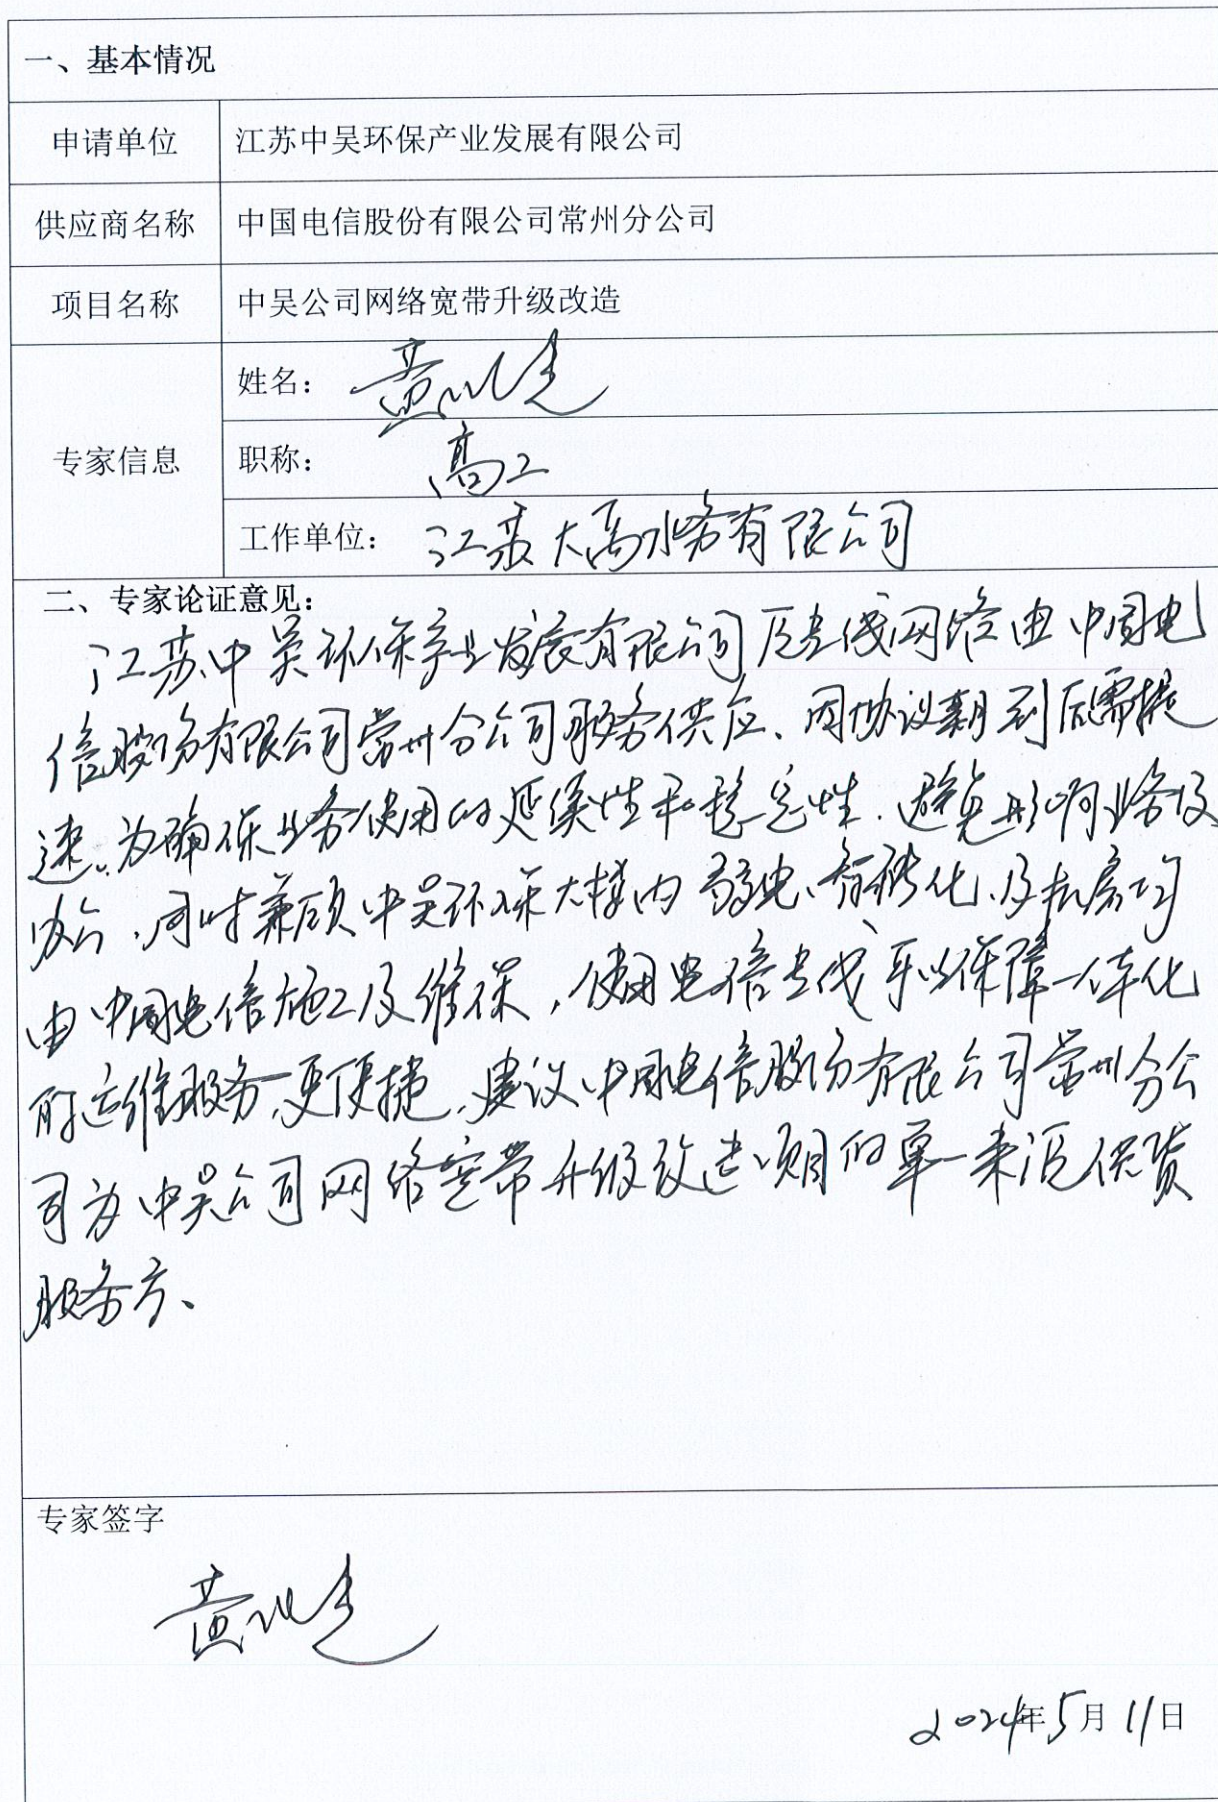 一、基本情况
申请单位
江苏中吴环保产业发展有限公司
供应商名称
中国电信股份有限公司常州分公司
项目名称
中吴公司网络宽带升级改造
专家信息
姓名： 黄
职称： 高工
工作单位： 江苏大禹水务有限公司
二、专家论证意见：
江苏中吴环保产业发展有限公司原专线网络由中国电
信股份有限公司常州分公司服务供应、因协议期到后需提
速、为确保业务使用的延续性和稳定性、避免影响业务及
办公，同时兼顾中吴环保大楼内弱电、智能化、及机房均
由中国电信施工及维保，使用电信专线可以保障一体化
的运维服务，更便捷、建议中国电信股份有限公司常州分公
司为中吴公司网络宽带升级改造项目的单一来源供货
服务方、
专家签字
黄
2024年5月11日